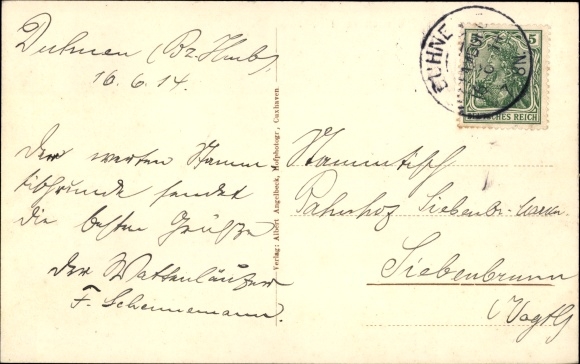 Duhnen (Bz. Hmb)
16.6.14.
Der werten Stamm-
tischrunde sendet
die besten Grüße
der Wattenläufer
F. Schennemann.
Verlag: Albert Angelbeck, Hofphotogr., Cuxhaven.
DUHNEN
5
DEUTSCHES REICH
Stammtisch
Bahnhof Siebenbr.
Siebenbrunn
(Vogtl)